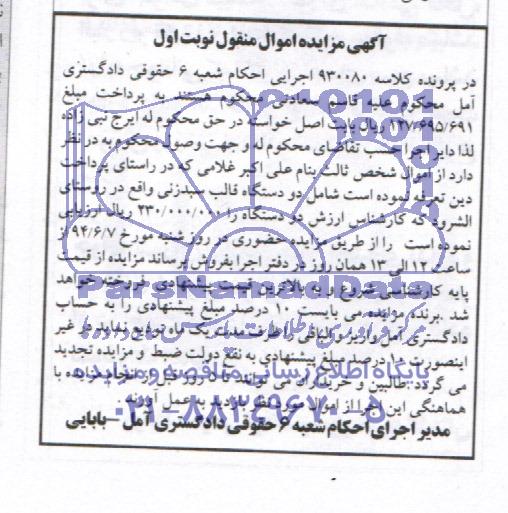 آگهی مزایده اموال منقول نوبت اول
در پرونده کلاسه ۹۳۰۰۸۰ اجرایی احکام شعبه ۶ حقوقی دادگستری
آمل محکوم علیه قاسم سعادتی محکوم هستند به پرداخت مبلغ
۱۲۷/۶۹۵/۶۹۱ ریال بابت اصل خواسته در حق محکوم له ایرج نبی زاده
لذا دایر اجرا حسب تقاضای محکوم له و جهت وصول محکوم به در نظر
دارد از اموال شخص ثالث بنام علی اکبر غلامی که در راستای پرداخت
دین تعرفه نموده است شامل دو دستگاه قالب سبدزنی واقع در روستای
الشرود که کارشناس ارزش دو دستگاه را ۲۳۰/۰۰۰/۰۰۰ ریال ارزیابی
نموده است را از طریق مزایده حضوری در روز شنبه مورخ ۹۴/۶/۷ از
ساعت ۱۲ الی ۱۳ همان روز در دفتر اجرا بفروش برساند مزایده از قیمت
پایه کارشناسی شروع و به بالاترین قیمت پیشنهادی فروخته خواهد
شد .برنده مزایده می بایست ۱۰ درصد مبلغ پیشنهادی را به حساب
دادگستری آمل واریز و الباقی را ظرف مدت یک ماه تودیع نماید در غیر
اینصورت ۱۰ درصد مبلغ پیشنهادی به نفع دولت ضبط و مزایده تجدید
می گردد. طالبین و خریداران می توانند تا ۵ روز قبل از مزایده با
هماهنگی این اجرا از اموال مورد نظر بازدید به عمل آورند
مدیر اجرای احکام شعبه ۶ حقوقی دادگستری آمل – بابایی
ParsNamadData
پایگاه اطلاع رسانی مناقصه و مزایده
۰۲۱-۸۸۳۴۹۶۷۰-۵